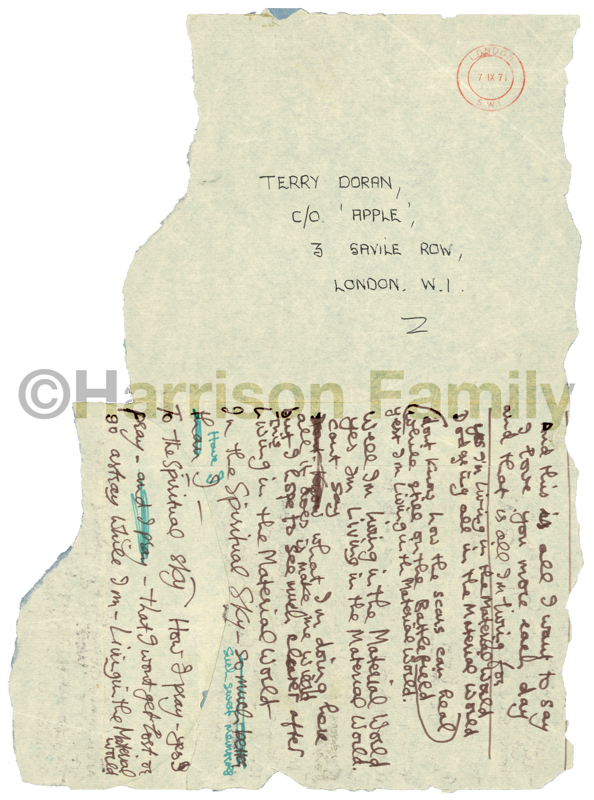 LONDON
7 IX 71
S.W.1.
TERRY DORAN,
C/O. 'APPLE',
3 SAVILE ROW,
LONDON. W.1.
©Harrison Family
And this is all I want to say
I love you more each day
and that is all I'm living for
yes I'm Living in the Material World
giving all in the Material World
(dont know how the scars can heal
while still on the Battlefield
yes I'm Living in the Material World
Well I'm Living in the Material World
Yes I'm Living in the Material World.
Cant say
what I'm doing here
all it does is make me weep
but I hope to see much clearer after
This
Living in the Material World
In the Spiritual Sky - so much better
such sweet memories
Have I
To the Spiritual Sky How I pray - yes I
pray - and I pray - that I wont get lost or
go astray while I'm - Living in the Material
World